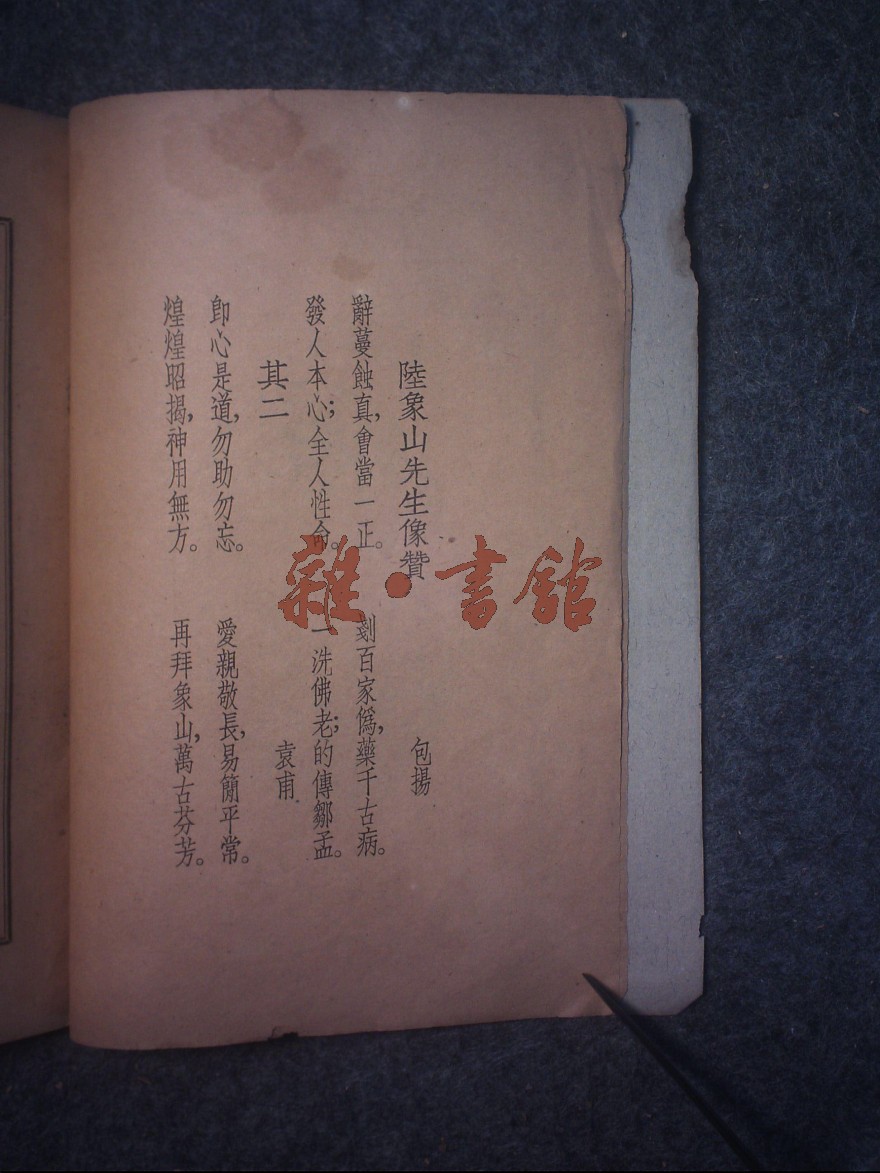 陸象山先生像贊 包揚
辭蔓蝕真，會當一正。 剗百家僞，藥千古病。
發人本心；全人性命。 一洗佛老；的傳鄒孟。
其二 袁甫
卽心是道，勿助勿忘。 愛親敬長，易簡平常。
煌煌昭揭，神用無方。 再拜象山，萬古芬芳。
雜·書館